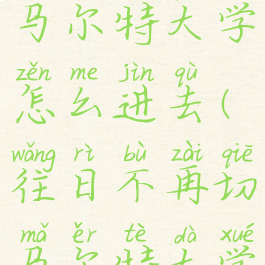 马尔特大学
zěn me jìn qù
怎么进去(
wǎng rì bù zài qiē
往日不再切
mǎ ěr tè dà xué
马尔特大学